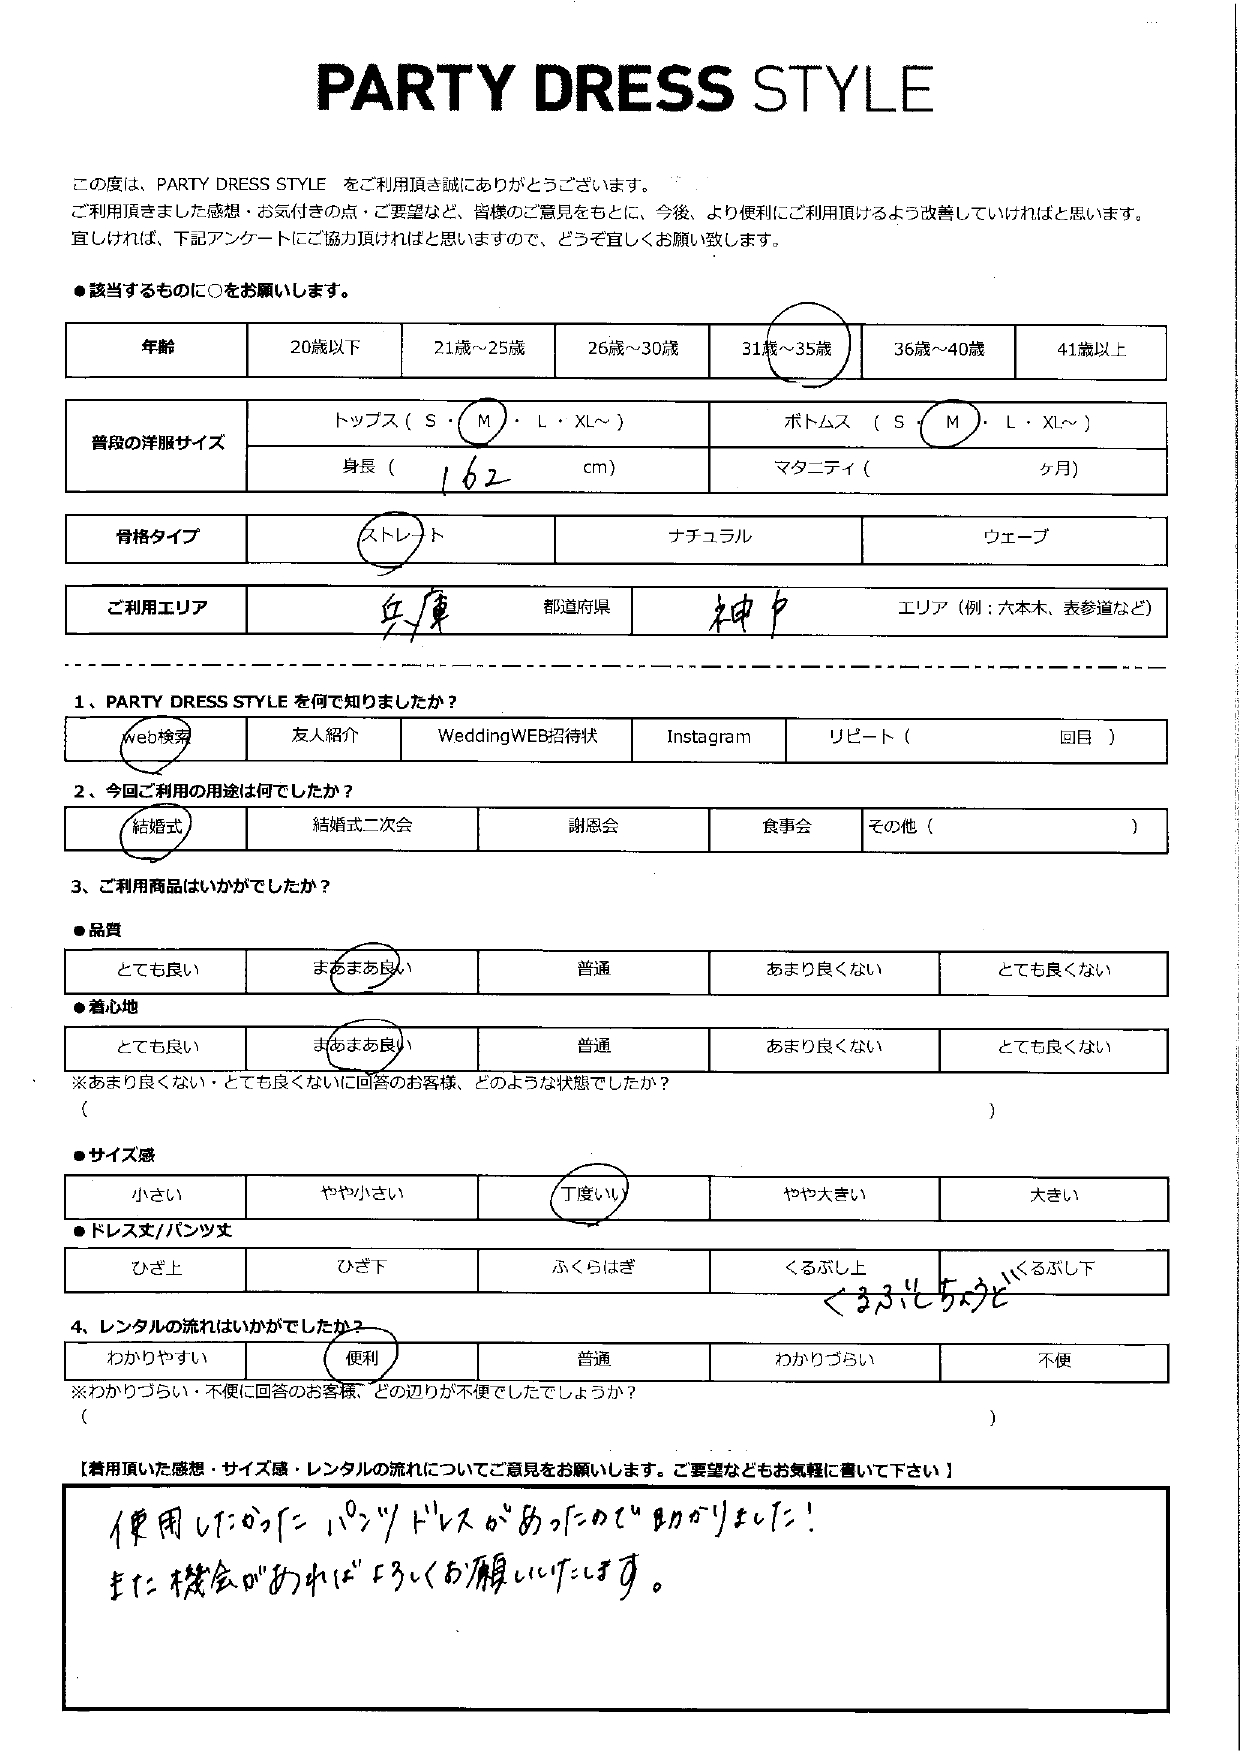 PARTY DRESS STYLE
この度は、PARTY DRESS STYLE をご利用頂き誠にありがとうございます。
ご利用頂きました感想・お気付きの点・ご要望など、皆様のご意見をもとに、今後、より便利にご利用頂けるよう改善していければと思います。
宜しければ、下記アンケートにご協力頂ければと思いますので、どうぞ宜しくお願い致します。
●該当するものに○をお願いします。
年齢 20歳以下 21歳～25歳 26歳～30歳 31歳～35歳 36歳～40歳 41歳以上
普段の洋服サイズ トップス ( S ・ M ・ L ・ XL～ ) ボトムス ( S ・ M ・ L ・ XL～ )
身長 ( 162 cm) マタニティ ( ヶ月)
骨格タイプ ストレート ナチュラル ウェーブ
ご利用エリア 兵庫 都道府県 神戸 エリア（例：六本木、表参道など）
1、PARTY DRESS STYLE を何で知りましたか？
web検索 友人紹介 WeddingWEB招待状 Instagram リピート ( 回目 )
2、今回ご利用の用途は何でしたか？
結婚式 結婚式二次会 謝恩会 食事会 その他 ( )
3、ご利用商品はいかがでしたか？
●品質
とても良い まあまあ良い 普通 あまり良くない とても良くない
●着心地
とても良い まあまあ良い 普通 あまり良くない とても良くない
※あまり良くない・とても良くないに回答のお客様、どのような状態でしたか？
( )
●サイズ感
小さい やや小さい 丁度いい やや大きい 大きい
●ドレス丈/パンツ丈
ひざ上 ひざ下 ふくらはぎ くるぶし上 くるぶし下
くるぶしちょうど
4、レンタルの流れはいかがでしたか？
わかりやすい 便利 普通 わかりづらい 不便
※わかりづらい・不便に回答のお客様、どの辺りが不便でしたでしょうか？
( )
【着用頂いた感想・サイズ感・レンタルの流れについてご意見をお願いします。ご要望などもお気軽に書いて下さい 】
使用したかったパンツドレスがあったので助かりました！
また機会があればよろしくお願いいたします。